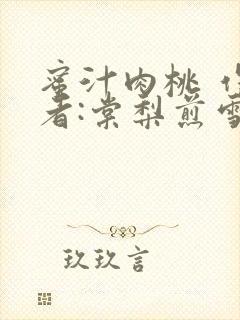 蜜汁肉桃 作
者:棠梨煎雪
玖玖言